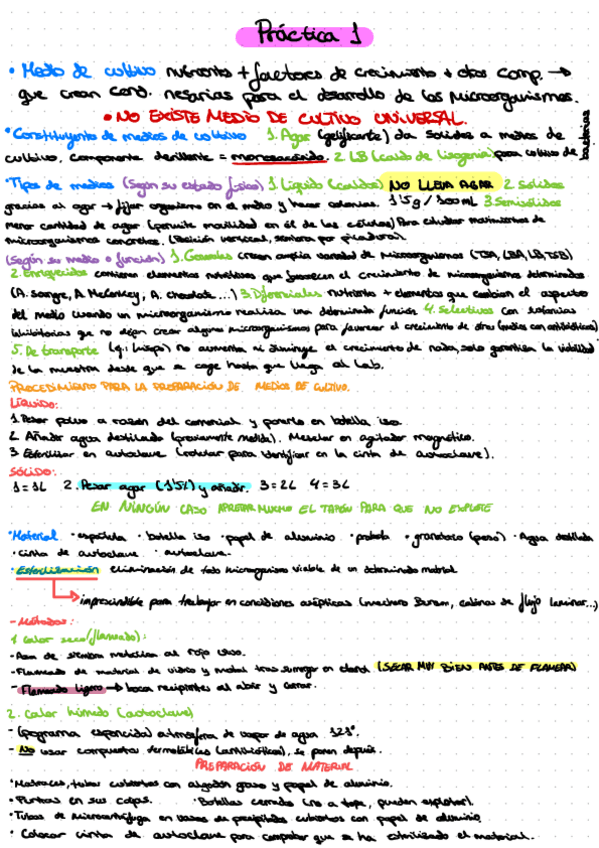 Práctica 1
• Medio de cultivo nutrientes + factores de crecimiento + otros comp. →
que crean cond. nesarias para el desarrollo de los microorganismos.
• NO EXISTE MEDIO DE CULTIVO UNIVERSAL.
• Constituyente de medios de cultivo 1. Agar (gelificante) da solidez a medios de
cultivo, componente derilante = monosacárido. 2 LB (caldo de lisogenia) para cultivo de bacterias
• Tipos de medios (Según su estado físico) 1. Líquido (caldos) NO LLEVA AGAR 2 Sólidos
gracias al agar → fijar organismo en el medio y hacer colonias. 1'5g / 100mL 3 Semisólidos
menor cantidad de agar (permite movilidad en él de las células) Para estudiar movimientos de
microorganismos concretos. (Posición vertical, siembra por picadura)
(Según su medio o función) 1. Generales crecen amplia variedad de microorganismos (TSA, LBA, LB, TSB)
2. Enriquecidos contienen elementos nutritivos que favorecen el crecimiento de microorganismos determinados
(A. Sangre, A. McConkey, A. chocolate...) 3. Diferenciales nutrientes + elementos que cambian el aspecto
del medio cuando un microorganismo realiza una determinada función 4. Selectivos con sustancias
inhibitorias que no dejan crecer algunos microorganismos para favorecer el crecimiento de otros (medios con antibióticos)
5. De transporte (ej: hisopo) no aumenta ni disminuye el crecimiento de nada, solo garantiza la viabilidad
de la muestra desde que se coge hasta que llega al lab.
PROCEDIMIENTO PARA LA PREPARACIÓN DE MEDIOS DE CULTIVO.
LÍQUIDO:
1. Pesar polvo a razón del comercial y ponerlo en botella iso.
2 Añadir agua destilada (previamente medida). Mezclar en agitador magnético.
3 Esterilizar en autoclave (rotular para identificar en la cinta de autoclave).
SÓLIDO:
1 = 1L 2. Pesar agar (1'5%) y añadir. 3 = 2L 4 = 3L
EN NINGÚN CASO APRETAR MUCHO EL TAPÓN PARA QUE NO EXPLOTE
• Material • espátula • botella iso • papel de aluminio • probeta • granatario (peso) • Agua destilada
• cinta de autoclave • autoclave.
• Esterilización eliminación de todo microorganismo viable de un determinado material.
→ imprescindible para trabajar en condiciones asépticas (mechero Bunsen, cabinas de flujo laminar...)
- Métodos:
1 calor seco (flameado):
- Asa de siembra metálica al rojo vivo.
- Flameado de material de vidrio y metal tras sumergir en etanol (SECAR MUY BIEN ANTES DE FLAMEAR)
- Flameado ligero → bocas recipientes al abrir y cerrar.
2. calor húmedo (autoclave)
- (programa esporicida) atmósfera de vapor de agua 121°.
- No usar compuestos termolábiles (antibióticos), se ponen después.
PREPARACIÓN DE MATERIAL
• Matraces, tubos cubiertos con algodón graso y papel de aluminio.
• Puntas en sus cajas. • Botellas cerradas (no a tope, pueden explotar).
• Tubos de microcentrífuga en vasos de precipitados cubiertos con papel de aluminio
• Colocar cinta de autoclave para comprobar que se ha esterilizado el material.